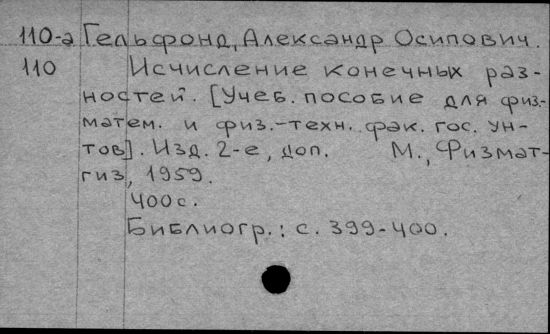 110-а Гельфонд, Александр Осипович.
110 Исчисление конечных раз-
ностей. [Учеб. пособие для физ.-
матем. и физ.-техн. фак. гос. ун-
тов]. Изд. 2-е, доп. М., Физмат-
гиз, 1959.
400 с.
Библиогр.: с. 399-400.